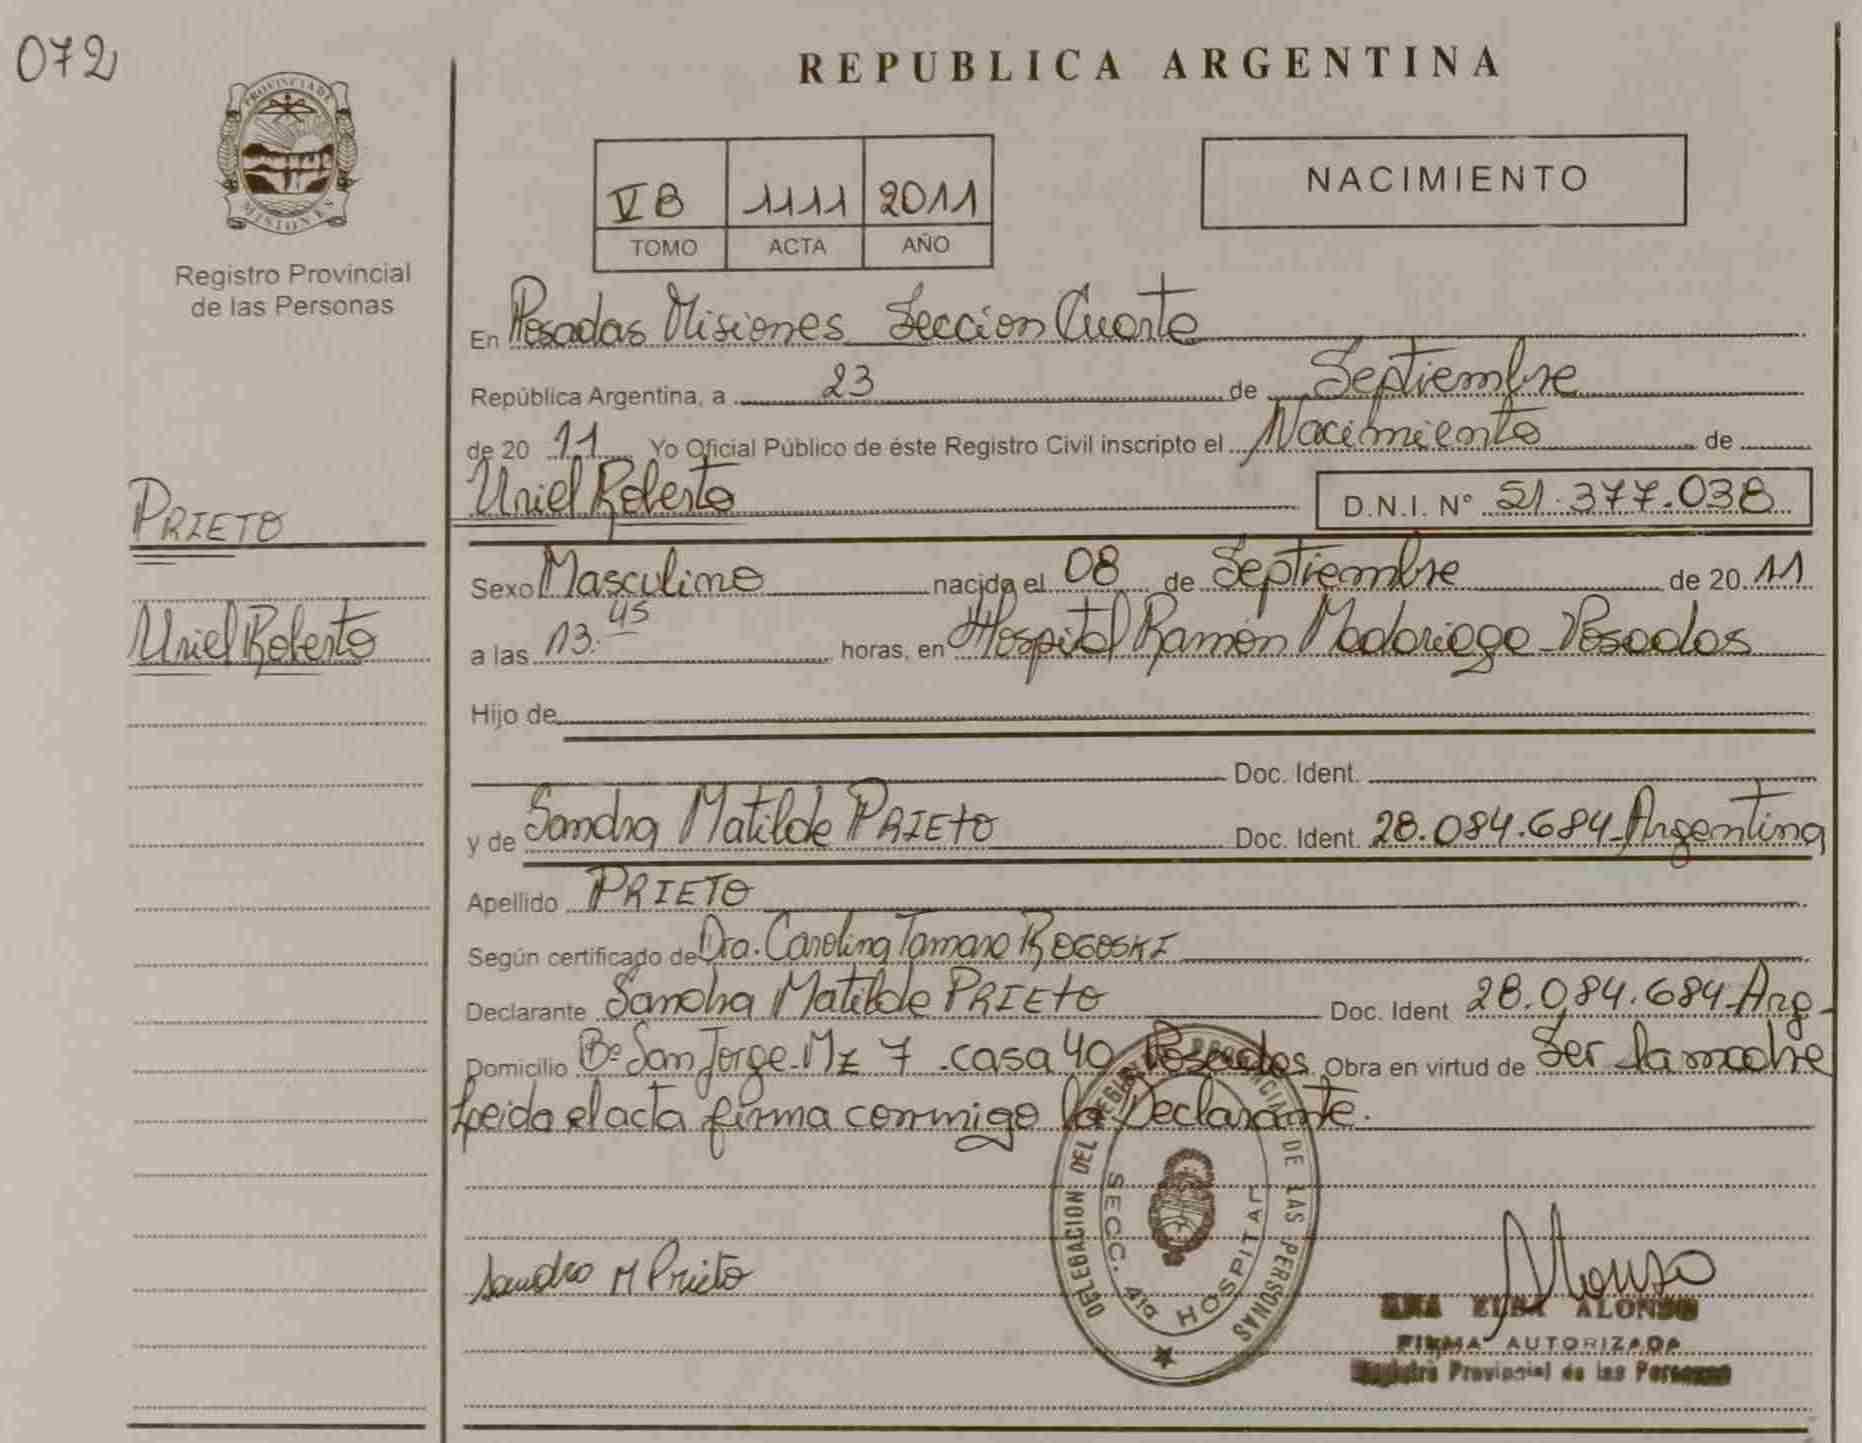 072
REPUBLICA ARGENTINA
PROVINCIA DE
MISIONES
Registro Provincial
de las Personas
VB 1111 2011
TOMO ACTA AÑO
NACIMIENTO
En Posadas Misiones Seccion Cuarta
República Argentina, a 23 de Septiembre
de 20 11 Yo Oficial Público de éste Registro Civil inscripto el Nacimiento de
Uriel Roberto D.N.I. N° 51.377.038
PRIETO
Sexo Masculino nacido el 08 de Septiembre de 20 11
Uriel Roberto
a las 13.45 horas, en Hospital Ramón Madariaga - Posadas
Hijo de
Doc. Ident.
y de Sandra Matilde PRIETO Doc. Ident. 28.084.684 - Argentina
Apellido PRIETO
Según certificado de Dra. Carolina Tamara ROGOSKI
Declarante Sandra Matilde PRIETO Doc. Ident 28.084.684 - Arg -
Domicilio Bº San Jorge - Mz 7 - casa 40 - Posadas Obra en virtud de Ser la madre
Leida el acta firma conmigo la Declarante.
DELEGACION DEL REGISTRO PROVINCIAL DE LAS PERSONAS
SECC. 4ta HOSPITAL
Sandra M Prieto
Alonso
ANA ELBA ALONSO
FIRMA AUTORIZADA
Registro Provincial de las Personas